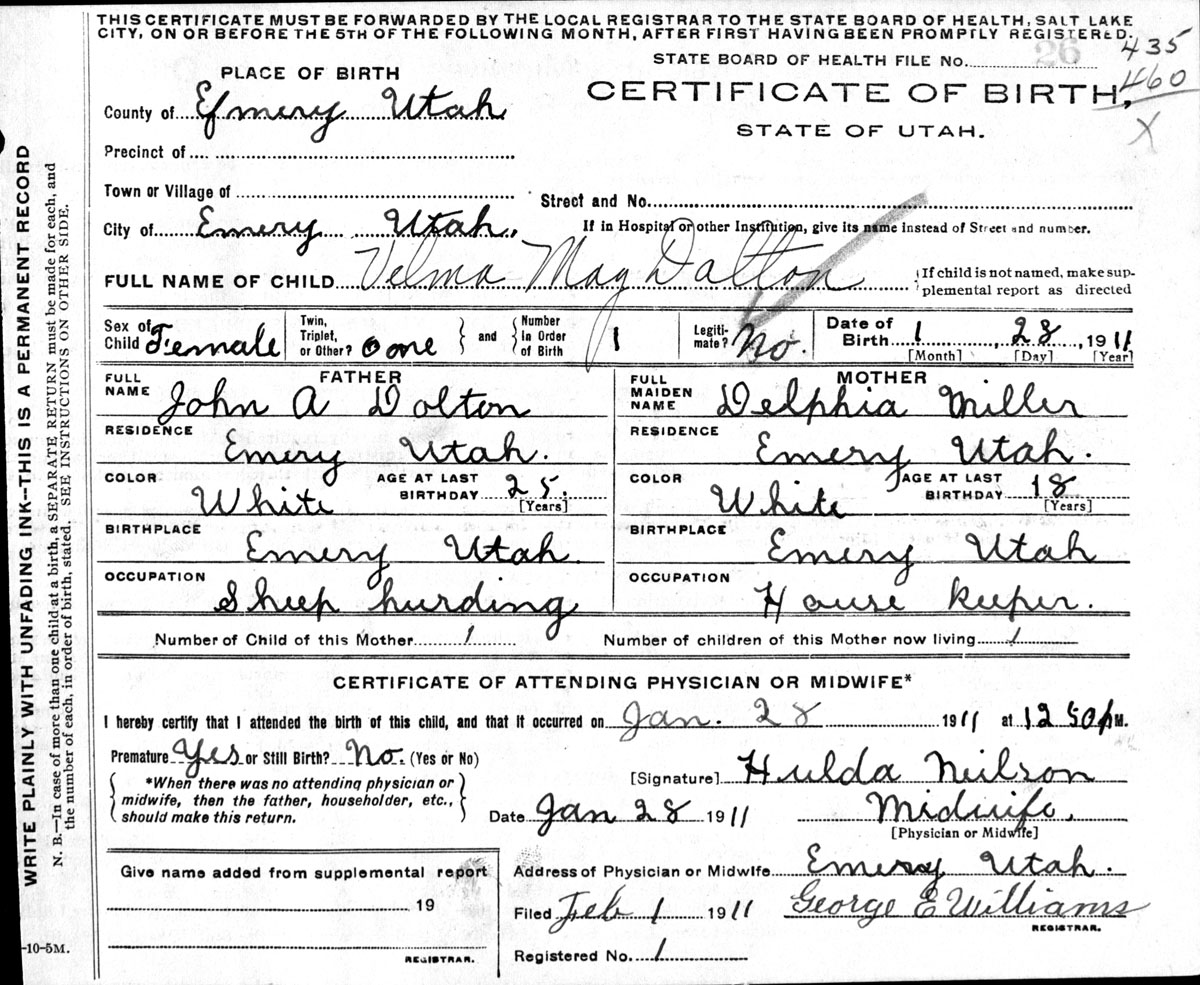 THIS CERTIFICATE MUST BE FORWARDED BY THE LOCAL REGISTRAR TO THE STATE BOARD OF HEALTH, SALT LAKE
CITY, ON OR BEFORE THE 5TH OF THE FOLLOWING MONTH, AFTER FIRST HAVING BEEN PROMPTLY REGISTERED.
435
STATE BOARD OF HEALTH FILE No. 26
460
X
PLACE OF BIRTH
CERTIFICATE OF BIRTH,
County of Emery Utah
STATE OF UTAH.
Precinct of
Town or Village of
Street and No.
City of Emery Utah.
If in Hospital or other Institution, give its name instead of Street and number.
FULL NAME OF CHILD Velma May Dalton
If child is not named, make sup-
plemental report as directed
Sex of Child Female
Twin, Triplet, or Other? one
and
Number in Order of Birth 1
Legiti-
mate? No.
Date of Birth 1 28, 1911
[Month] [Day] [Year]
FATHER
FULL NAME John A Dolton
MOTHER
FULL MAIDEN NAME Delphia Miller
RESIDENCE Emery Utah.
RESIDENCE Emery Utah.
COLOR White AGE AT LAST BIRTHDAY 25. [Years]
COLOR White AGE AT LAST BIRTHDAY 18 [Years]
BIRTHPLACE Emery Utah.
BIRTHPLACE Emery Utah
OCCUPATION Sheep hurding
OCCUPATION House keeper.
Number of Child of this Mother 1 Number of children of this Mother now living 1
CERTIFICATE OF ATTENDING PHYSICIAN OR MIDWIFE*
I hereby certify that I attended the birth of this child, and that it occurred on Jan. 28 1911 at 12 50 M.
Premature Yes or Still Birth? No. (Yes or No)
*When there was no attending physician or
midwife, then the father, householder, etc.,
should make this return.
[Signature] Hulda Neilson
Date Jan 28 1911 Midwife.
[Physician or Midwife]
Give name added from supplemental report
19
REGISTRAR.
Address of Physician or Midwife Emery Utah.
Filed Feb 1 1911 George E Williams
REGISTRAR.
Registered No. 1
WRITE PLAINLY WITH UNFADING INK--THIS IS A PERMANENT RECORD
N. B.—In case of more than one child at a birth, a SEPARATE RETURN must be made for each, and
the number of each, in order of birth, stated. SEE INSTRUCTIONS ON OTHER SIDE.
-10-5M.